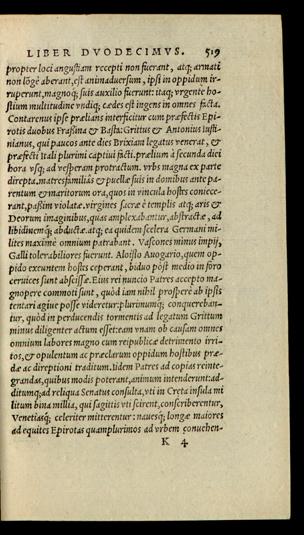 LIBER DVODECIMVS. 519
propter loci angustiam recepti non fuerant, atq; armati
non lõgè aberant, est animaduersum, ipsi in oppidum ir-
ruperunt, magnoq; suis auxilio fuerunt: itaq; vrgente ho-
stium multitudine vndiq; cædes est ingens in omnes facta.
Contarenus ipse prælians interficitur cum præfectis Epi-
rotis duobus Frassina & Basta: Grittus & Antonius Iusti-
nianus, qui paucos ante dies Brixiam legatus venerat, &
præfecti Itali plurimi captiui facti. prælium à secunda diei
hora vsq; ad vesperam protractum. vrbs magna ex parte
direpta, matresfamiliâs & puellæ suis in domibus ante pa-
rentum & maritorum ora, quos in vincula hostes coniece-
rant, passim violatæ. virgines sacræ è templis atq; aris &
Deorum imaginibus, quas amplexabantur, abstractæ, ad
libidinemq; abductæ. atq; ea quidem scelera Germani mi-
lites maxime omnium patrabant. Vascones minus impij,
Galli tolerabiliores fuerunt. Aloisio Auogario, quem op-
pido exeuntem hostes ceperant, biduo pòst medio in foro
ceruices sunt abscissæ. Eius rei nuncio Patres accepto ma-
gnopere commoti sunt, quòd iam nihil prosperè ab ipsis
tentari agiue posse videretur: plurimumq; conquereban-
tur, quòd in perducendis tormentis ad legatum Grittum
minus diligenter actum esset: eam vnam ob causam omnes
omnium labores magno cum reipublicæ detrimento irri-
tos, & opulentum ac præclarum oppidum hostibus præ-
dæ ac direptioni traditum. Iidem Patres ad copias reinte-
grandas, quibus modis poterant, animum intenderunt: ad-
ditumq; ad reliqua Senatus consulta, vti in Creta insula mi
litum bina millia, qui sagittis vti scirent, conscriberentur,
Venetiasq; celeriter mitterentur: nauesq; longæ maiores
ad equites Epirotas quamplurimos ad vrbem conuehen-
K 4